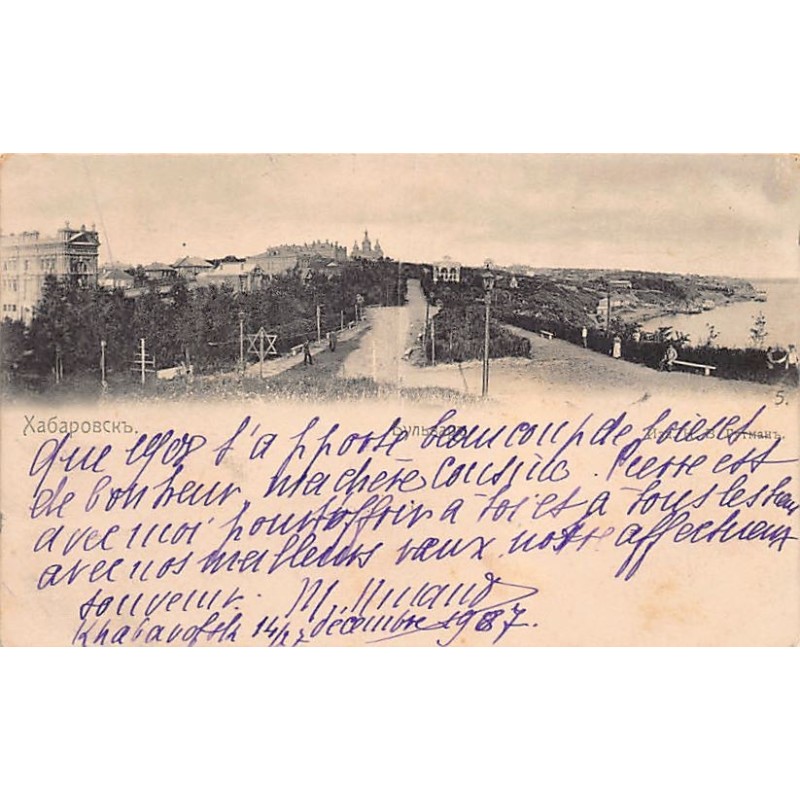 Хабаровскъ. Бульваръ. 5.
que 1908 t'apporte beaucoup de joie et
de bonheur, ma chère cousine. Pierre est
avec moi pour t'offrir à toi et à tous les tiens
avec nos meilleurs vœux notre affectueux
souvenir. M.
Khabarofsk 14/27 décembre 1907.